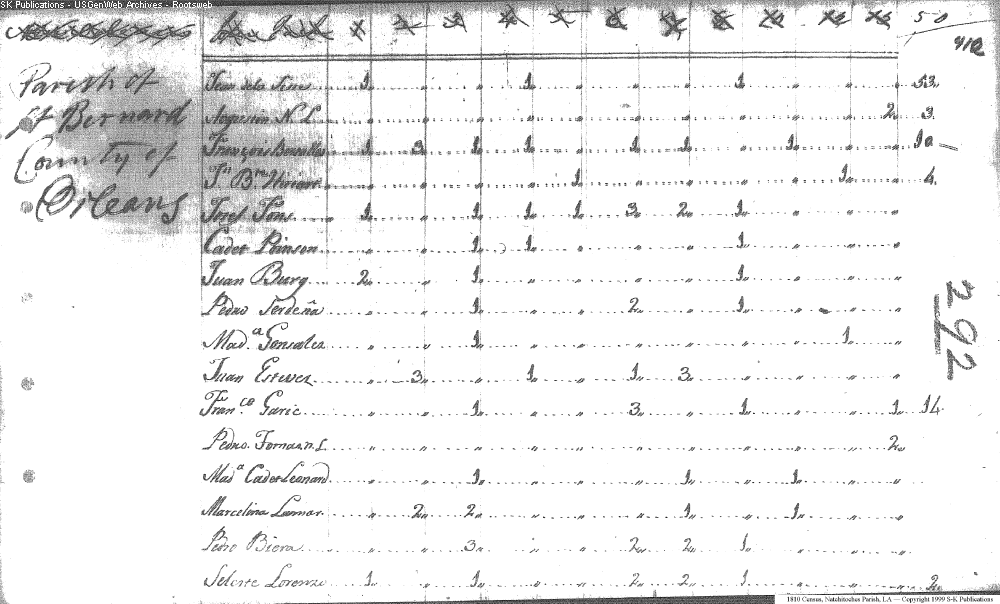 SK Publications - USGenWeb Archives - Rootsweb
50
412
Parish of
St Bernard
County of
Orleans
Jean de la 1 " " 1 " " " 1 " " " 53
Augustin N. L. " " " " " " " " " " 2 3
François 1 3 1 1 " 1 1 " 1 " " 10
" " " " 1 " " " " 1 " 4
Josef Pons 1 " 1 1 1 3 2 1 " " "
Cadet Prinson " " 1 1 " " " 1 " " "
Juan Burg 2 " 1 " " " " 1 " " "
Pedro Serdeña " " 1 " " 2 " 1 " " "
Mad.a Gonzalez " " 1 " " " " " " 1 "
Juan Estevez " 3 " 1 " 1 3 " " " "
Fran.co Garic " " 1 " " 3 " 1 " " 1 14
Pedro " " " " " " " " " " 2
Mad.a Cadet Leonard " " 1 " " " 1 " 1 " "
Marcelina Lamar " 2 2 " " " 1 " 1 " "
Pedro Biera " " 3 " " 2 2 1 " " "
Seleste Lorenzo 1 " 1 " " 2 2 1 " " " 2
292
1810 Census, Natchitoches Parish, LA — Copyright 1999 S-K Publications